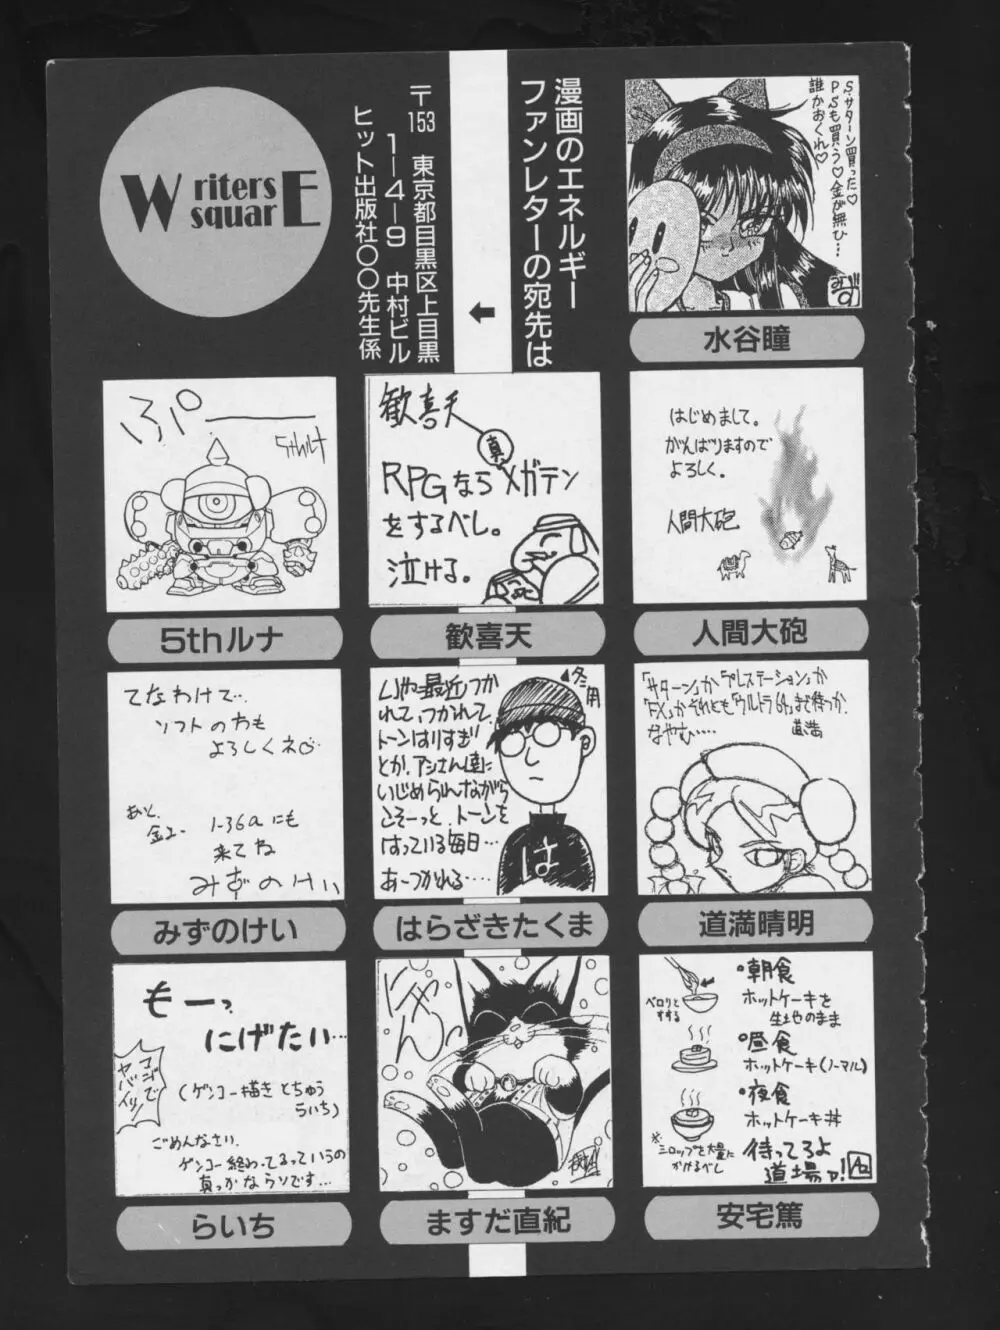 Writers squarE
漫画のエネルギー
ファンレターの宛先は
〒153 東京都目黒区上目黒
1―4―9 中村ビル
ヒット出版社〇〇先生係
S.サターン買った♡
PSも買う♡金が無ひ…
誰かおくれ♡
水谷瞳
ぷp
5thルナ
5thルナ
歓喜天
真
RPGならメガテン
をするべし。
泣ける。
歓喜天
はじめまして。
がんばりますので
よろしく。
人間大砲
人間大砲
てなわけで…
ソフトの方も
よろしくネ
あと、
1-36aにも
来てね
みずのけい
みずのけい
いや最近つか
れて、つかれて、
トーンはりすぎ
とか、アシさん達に
いじめられながら
こそーっと、トーンを
はっている毎日…
あーつかれる‥‥
冬用
は
はらざきたくま
「サターン」か「プレステーション」か
「FX」かそれとも「ウルトラ64」まで待つか.
なやむ‥‥
道満
道満晴明
もーっ
にげたい…
コゴデヤバイッ
(ゲンコー描きとちゅう
らいち)
ごめんなさい.
ゲンコー終わってるっていうの
真っかなウソです…
らいち
にゃんっ
ますだ直紀
・朝食
ホットケーキを
生地のまま
ベロリと
すする
・昼食
ホットケーキ(ノーマル)
・夜食
ホットケーキ丼
※シロップを大量に
かけるべし
待ってろよ
道場ァ!
安宅篤